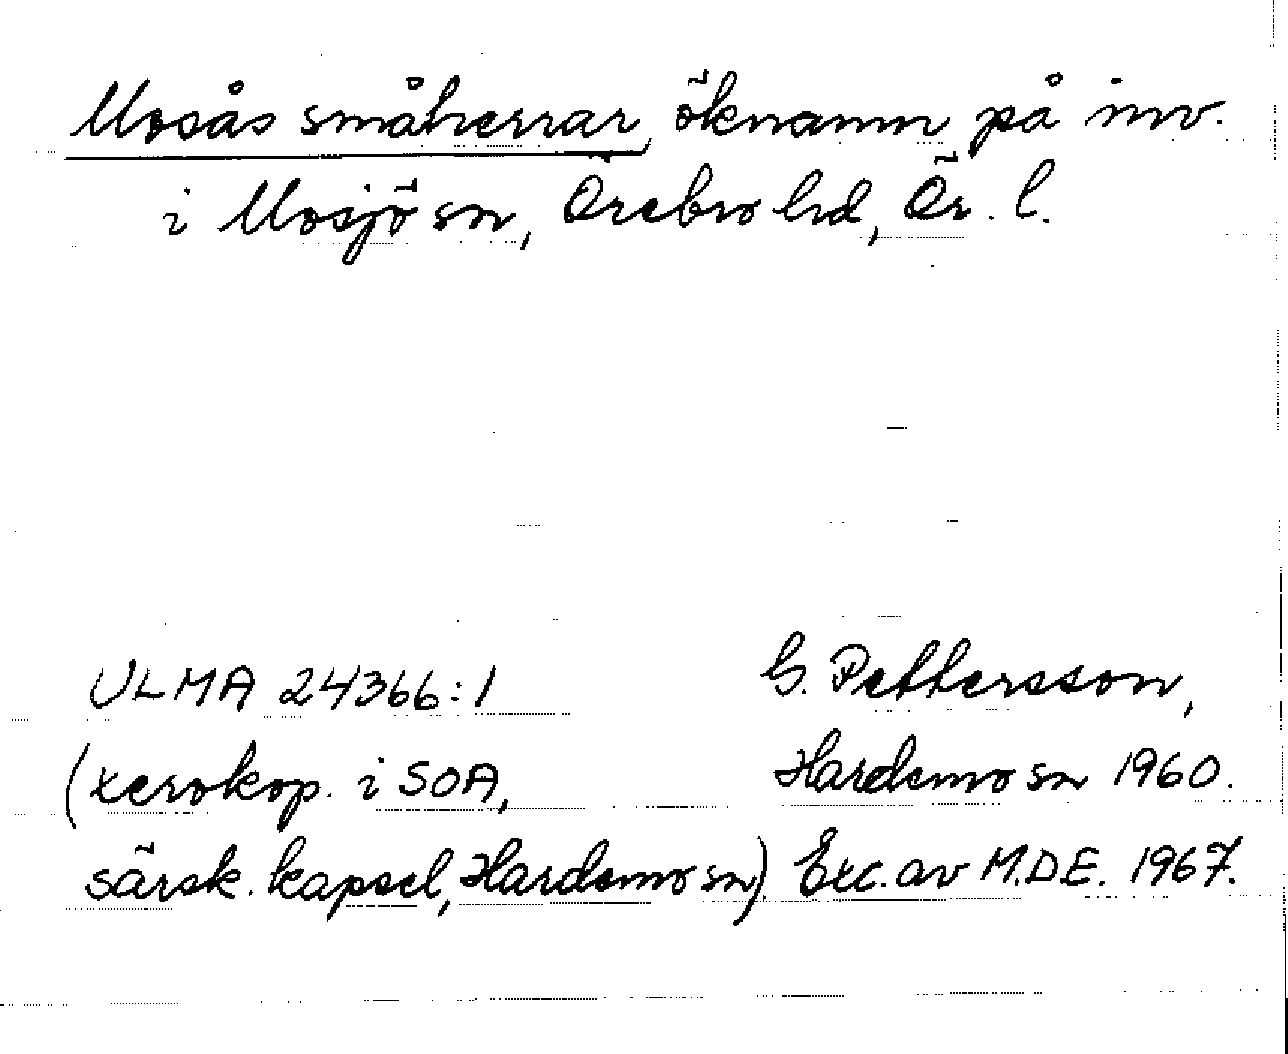 Mosås småherrar, öknamn på inv.
i Mosjö sn, Örebro hd, Ör. l.
ULMA 24366:1
G. Pettersson,
(xerokop. i SOA,
Hardemo sn 1960.
särsk. kapsel, Hardemo sn)
Exc. av M.D.E. 1967.